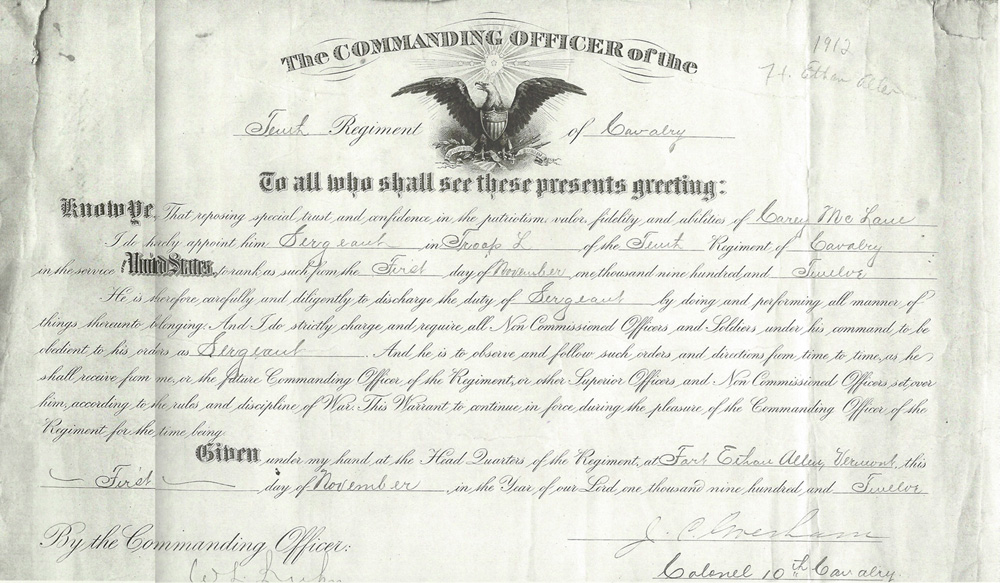 The COMMANDING OFFICER of the
1912
Ft. Ethan Allen
Tenth Regiment of Cavalry
To all who shall see these presents greeting:
Know Ye, That reposing special trust and confidence in the patriotism, valor, fidelity and abilities of Carey McLane
I do hereby appoint him Sergeant in Troop L of the Tenth Regiment of Cavalry
in the service United States, to rank as such from the First day of November one thousand nine hundred and Twelve
He is therefore carefully and diligently to discharge the duty of Sergeant by doing and performing all manner of
things thereunto belonging. And I do strictly charge and require all Non-Commissioned Officers and Soldiers under his command to be
obedient to his orders as Sergeant. And he is to observe and follow such orders and directions from time to time, as he
shall receive from me, or the future Commanding Officer of the Regiment, or other Superior Officers and Non Commissioned Officers, set over
him, according to the rules and discipline of War. This Warrant to continue in force during the pleasure of the Commanding Officer of the
Regiment for the time being.
Given under my hand at the Head Quarters of the Regiment, at Fort Ethan Allen, Vermont, this
First day of November, in the Year of our Lord one thousand nine hundred and Twelve
J. C. Gresham
By the Commanding Officer:
Colonel 10th Cavalry.